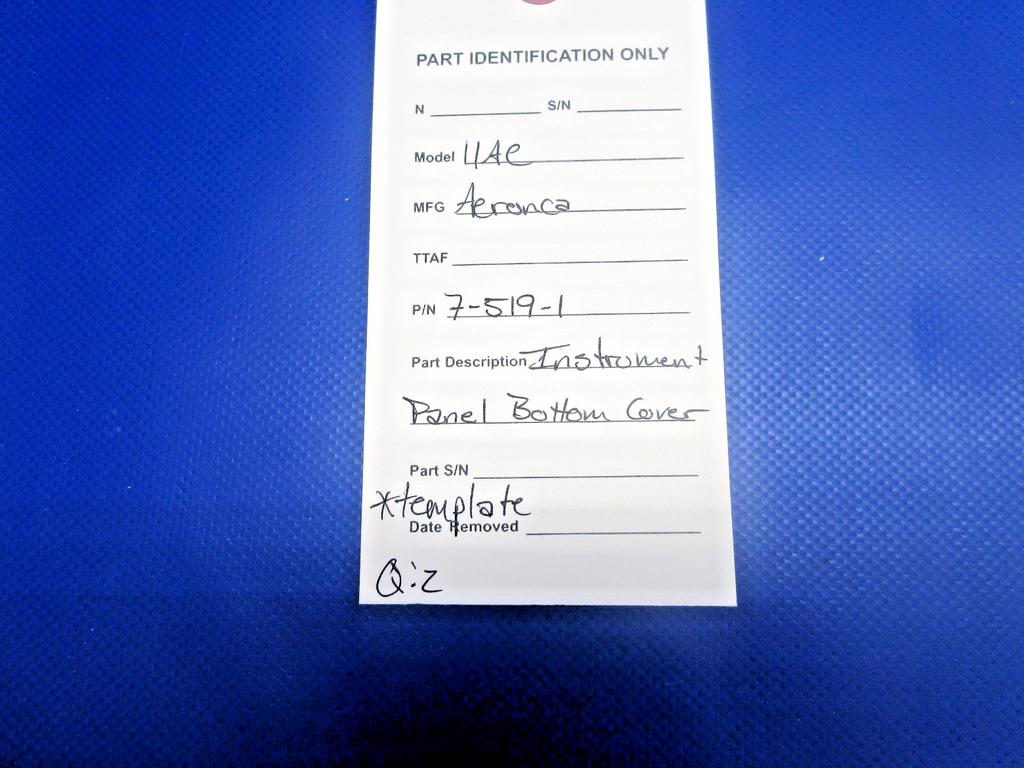 PART IDENTIFICATION ONLY
N S/N
Model 11AC
MFG Aeronca
TTAF
P/N 7-519-1
Part Description Instrument
Panel Bottom Cover
Part S/N
*template
Date Removed
Q:2